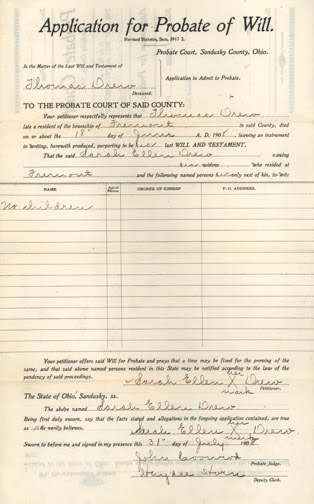 Application for Probate of Will.
Revised Statutes, Secs. 5917
Probate Court, Sandusky County, Ohio.
In the Matter of the Last Will and Testament of
Thomas Drew
Deceased.
Application to Admit to Probate.
TO THE PROBATE COURT OF SAID COUNTY:
Your petitioner respectfully represents that Thomas Drew
late a resident of the township of Fremont in said County, died
on or about the 18" day of June A. D. 1908, leaving an instrument
in writing, herewith produced, purporting to be his last WILL AND TESTAMENT.
That the said Sarah Ellen Drew
his widow who resided at
Fremont and the following named persons his only next of kin, to-wit:
NAME Age of DEGREE OF KINSHIP P. O. ADDRESS.
No children
Your petitioner offers said Will for Probate and prays that a time may be fixed for the proving of the
same, and that said above named persons resident in this State may be notified according to law of the
pendency of said proceedings.
her
Sarah Ellen X Drew
Petitioner.
mark
The State of Ohio, Sandusky, ss.
The above named Sarah Ellen Drew
Being first duly sworn, say that the facts stated and allegations in the foregoing application contained, are true
as she verily believes.
her
Sarah Ellen X Drew
mark
Sworn to before me and signed in my presence this 31st day of July 1908
John
Probate Judge.
Deputy Clerk.